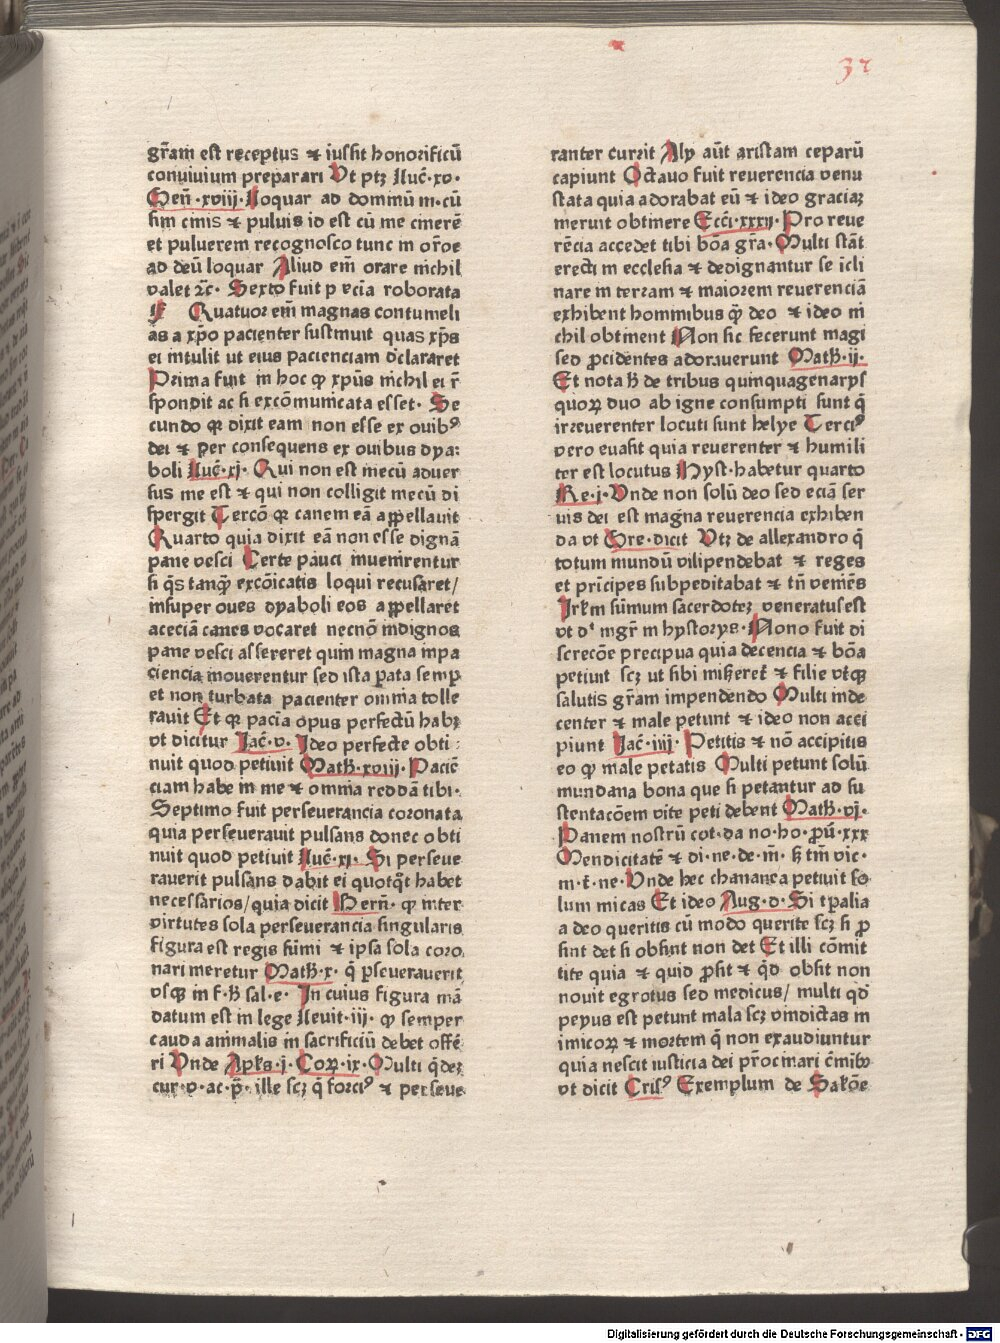 32
grãm est receptus ⁊ iussit honorificũ
conuiuium preparari Vt ptꝫ Luc̃·xv·
Gen̄·xviij· Loquar ad dommũ m·cũ
sim cinis ⁊ puluis id est cũ me cinerẽ
et puluerem recognosco tunc in or̃oe
ad deũ loquar Aliud em̃ orare nichil
valet ⁊c̃· Sexto fuit p ecia roborata
F Quatuor em̃ magnas contumeli
as a xp̃o pacienter sustinuit quas xp̃s
ei intulit ut eius pacienciam d̕clararet
Prima fuit in hoc ꝙ xp̃us nichil ei r̃
spondit ac si excõmunicata esset· Se
cundo ꝙ dixit eam non esse ex ouibꝰ
dei ⁊ per consequens ex ouibus dya:
boli Luc̃·xj· Qui non est mecũ aduer
sus me est ⁊ qui non colligit mecũ di
spergit Tercõ ꝙ canem eã appellauit
Quarto quia dixit eã non esse dignã
pane vesci Certe pauci inuenirentur
si q̃s tanꝙ̃ excõicatis loqui recusaret/
insuper oues dyaboli eos appellaret
aceciã canes vocaret necnõ indignos
pane vesci assereret quin magna inpa
ciencia mouerentur sed ista ꝑata semꝑ
et non turbata pacienter omnia tolle
rauit Et ꝙ pacĩa opus perfectũ habꝫ
vt dicitur Jac̃·v· Ideo perfecte obti:
nuit quod petiuit Math̃·xviij· Paciẽ
ciam habe in me ⁊ omnia reddã tibi·
Septimo fuit perseuerancia coronata
quia perseuerauit pulsans donec obti
nuit quod petiuit Luc̃·xj· Si perseue
rauerit pulsans dabit ei quotq̃t habet
necessarios/quia dicit Bern̄· ꝙ inter
virtutes sola perseuerancia singularis
figura est regis sũmi ⁊ ipsa sola coro
nari meretur Math̃·x· q̃ ꝑseuerauerit
vsqꝫ in f·h̃ sal·e· In cuius figura mã
datum est in lege Leuit·iij· ꝙ semper
cauda animalis in sacrificiũ debet offẽ
ri Vnde Apl̃s·j·Coꝝ·ix·Multi q̃deꝫ
cur·v·ac·p̃· ille scꝫ q̃ forciꝰ ⁊ perseue
ranter currit Alij aũt aristam ceparũ
capiunt Octauo fuit reuerencia venu
stata quia adorabat eũ ⁊ ideo graciaꝫ
meruit obtinere Ecc̃i·xxxij· Pro reue
rẽcia accedet tibi bõa gr̃a· Multi stãt
erecti in ecclesia ⁊ dedignantur se icli
nare in terram ⁊ maiorem reuerenciã
exhibent hominibus ꝙ̃ deo ⁊ ideo ni
chil obtinent Non sic fecerunt magi
sed ꝓcidentes adorauerunt Math̃·ij·
Et nota h̃ de tribus quinquagenarijs
quoꝝ duo ab igne consumpti sunt q̃
irreuerenter locuti sunt helye Terciꝰ
vero euasit quia reuerenter ⁊ humili
ter est locutus Hyst·habetur quarto
Re·j·Vnde non solũ deo sed eciã ser
uis dei est magna reuerencia exhiben
da vt Gre·dicit Vtꝫ de allexandro q̃
totum mundũ vilipendebat ⁊ reges
et prĩcipes subpeditabat ⁊ tñ veniẽs
Irl̃m sũmum sacerdoteꝫ veneratus est
vt dᶦ mgr̃ in hystorys·Nono fuit di
screcõe precipua quia decencia ⁊ bõa
petiuit scꝫ ut sibi mis̃eret̃ ⁊ filie vtꝙꝫ
salutis gr̃am impendendo Multi inde
center ⁊ male petunt ⁊ ideo non acci
piunt Jac̃·iiij· Petitis ⁊ nõ accipitis
eo ꝙ male petatis Multi petunt solũ
mundana bona que si petantur ad su
stentacõem vite peti debent Math̃·vj·
Panem nostrũ cot·da no·ho·ꝓũ·xxx
Mendicitatẽ ⁊ di·ne·de·m̃· h̃ tm̃ vic·
m·t·ne·Vnde hec chananea petiuit so
lum micas Et ideo Aug·d·Si tꝑalia
a deo queritis cũ modo querite scꝫ si ꝓ
sint det si obsint non det Et illi cõmit
tite quia ⁊ quid ꝓsit ⁊ q̃d obsit non
nouit egrotus sed medicus/ multi qd̃
peyus est petunt mala scꝫ vindictas in
imicoꝝ ⁊ mortem q̃ non exaudiuntur
quia nescit iusticia dei pr̃ocinari c̃mĩbꝰ
vt dicit Crisꝰ Exemplum de Sal̃oẽ
Digitalisierung gefördert durch die Deutsche Forschungsgemeinschaft - DFG